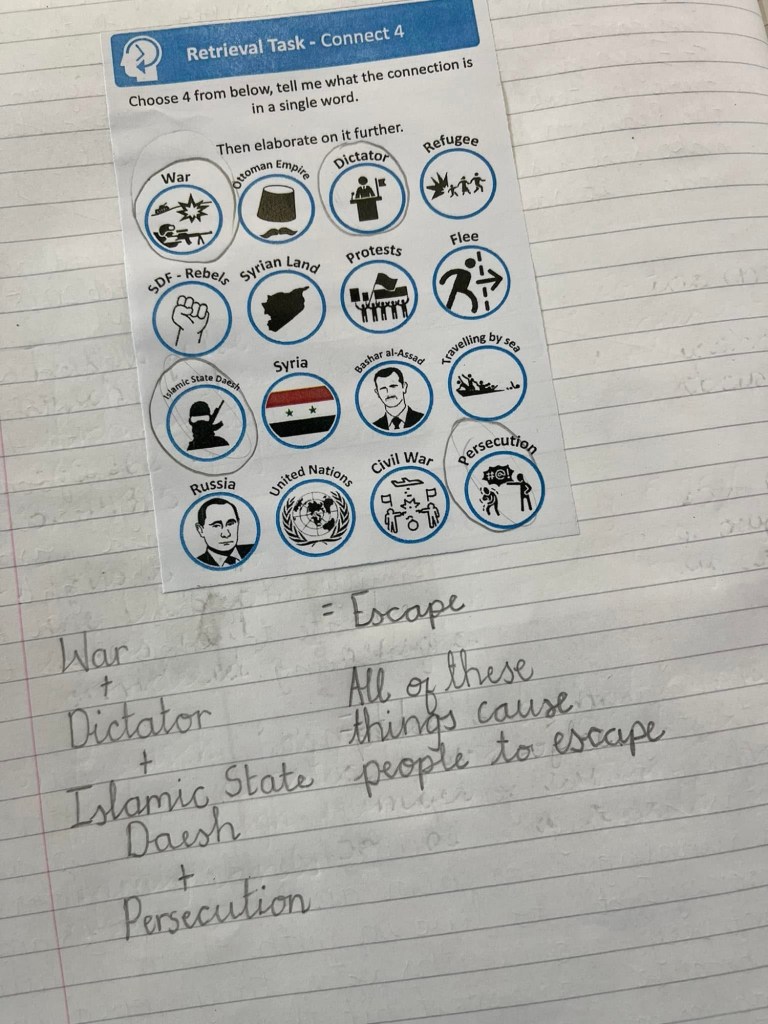 Retrieval Task - Connect 4
Choose 4 from below, tell me what the connection is
in a single word.
Then elaborate on it further.
War
Ottoman Empire
Dictator
Refugee
SDF - Rebels
Syrian Land
Protests
Flee
Islamic State Daesh
Syria
Bashar al-Assad
Travelling by sea
Russia
United Nations
Civil War
Persecution
#@!
= Escape
War
+
Dictator
+
Islamic State
Daesh
+
Persecution
All of these
things cause
people to escape